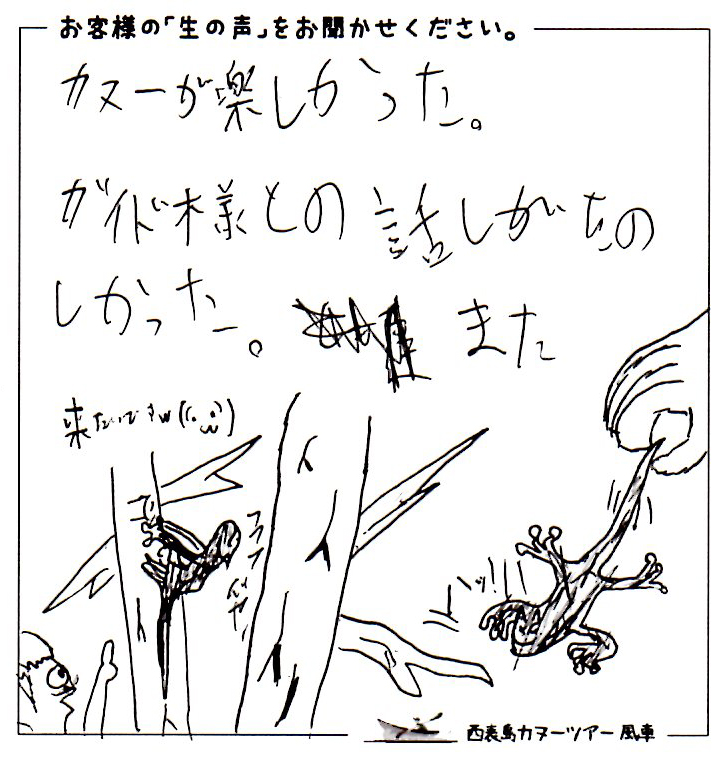 お客様の「生の声」をお聞かせください。
カヌーが楽しかった。
ガイド様との話しがたの
しかった。 また
来たいですw
フフフ
ハッ!!!
西表島カヌーツアー風車